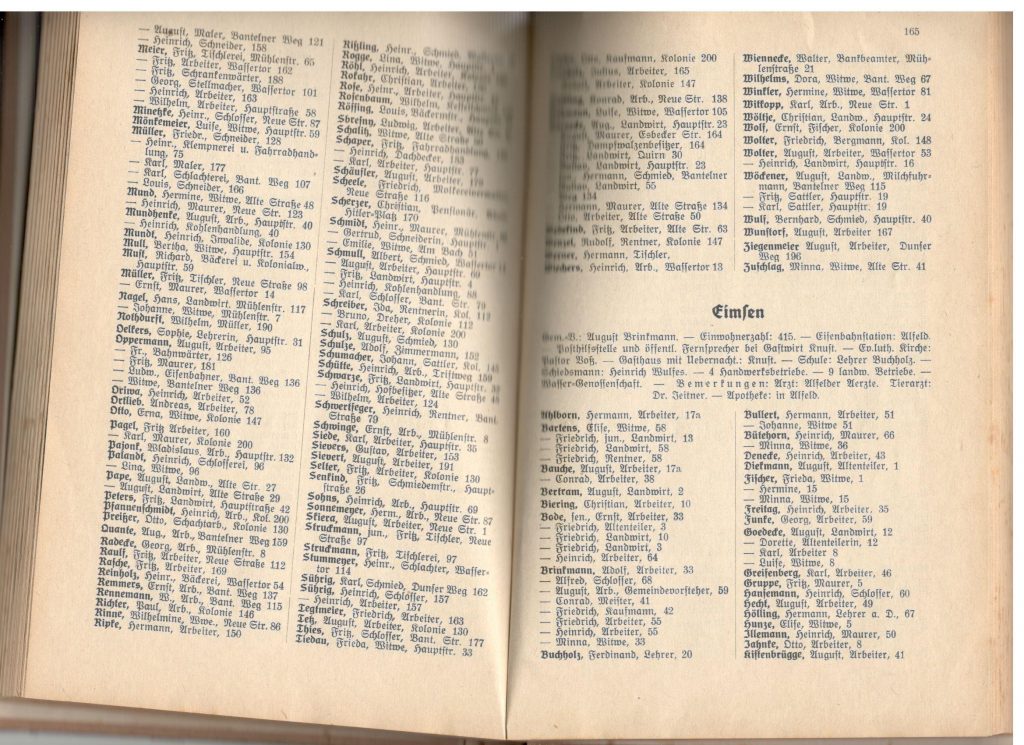 — August, Maler, Bantelner Weg 121
— Heinrich, Schneider, 158
Meier, Fritz, Tischlerei, Mühlenstr. 65
— Fritz, Arbeiter, Wassertor 162
— Fritz, Schrankenwärter, 188
— Georg, Stellmacher, Wassertor 101
— Heinrich, Arbeiter, 163
— Wilhelm, Arbeiter, Hauptstraße 58
Minetzke, Heinr., Schlosser, Neue Str. 87
Mönkemeier, Luise, Witwe, Hauptstr. 59
Müller, Friedr., Schneider, 128
— Heinr., Klempnerei u. Fahrradhand-
lung, 75
— Karl, Maler, 177
— Karl, Schlachterei, Bant. Weg 107
— Louis, Schneider, 166
Mund, Hermine, Witwe, Alte Straße 48
— Heinrich, Maurer, Neue Str. 123
Mundhenke, August, Arb., Hauptstr. 40
— Heinrich, Kohlenhandlung, 40
Mundt, Heinrich, Invalide, Kolonie 130
Mull, Bertha, Witwe, Hauptstr. 154
Must, Richard, Bäckerei u. Kolonialw.,
Hauptstr. 59
Müller, Fritz, Tischler, Neue Straße 98
— Ernst, Maurer, Wassertor 14
Nagel, Hans, Landwirt, Mühlenstr. 117
— Johanne, Witwe, Mühlenstr. 7
Nothdurft, Wilhelm, Müller, 190
Oelkers, Sophie, Lehrerin, Hauptstr. 31
Oppermann, August, Arbeiter, 95
— Fr., Bahnwärter, 126
— Fritz, Maurer, 181
— Ludw., Eisenbahner, Bant. Weg 136
— Witwe, Bantelner Weg 136
Oriwa, Heinrich, Arbeiter, 52
Ortlieb, Andreas, Arbeiter, 78
Otto, Erna, Witwe, Kolonie 147
Pagel, Fritz Arbeiter, 160
— Karl, Maurer, Kolonie 200
Pajonk, Wladislaus, Arb., Hauptstr. 132
Palandt, Heinrich, Schlosserei, 96
— Lina, Witwe, 96
Pape, August, Landw., Alte Str. 27
— August, Landwirt, Alte Straße 29
Peters, Fritz, Landwirt, Hauptstraße 42
Pfannenschmidt, Heinrich, Arb., Kol. 200
Preißer, Otto, Schachtarb., Kolonie 130
Quante, Aug., Arb., Bantelner Weg 159
Radecke, Georg, Arb., Mühlenstr. 8
Rauls, Fritz, Arbeiter, Neue Straße 112
Rasche, Fritz, Arbeiter, 169
Reinholz, Heinr., Bäckerei, Wassertor 54
Remmers, Ernst, Arb., Bant. Weg 137
Rennemann, W., Arb., Bant. Weg 115
Richter, Paul, Arb., Kolonie 146
Rinne, Wilhelmine, Wwe., Neue Str. 86
Ripke, Hermann, Arbeiter, 150
Rißling, Heinr., Schmied,
Rogge, Lina, Witwe,
Röhl, Heinrich, Arbeiter,
Rokahr, Christian, Arbeiter,
Rose, Heinr., Arbeiter,
Rosenbaum, Wilhelm,
Rössing, Louis, Bäckermstr.,
Sbresny, Ludwig, Arbeiter,
Schalitz, Witwe, Alte Straße
Schaper, Fritz, Fahrradhandlung,
— Heinrich, Dachdecker, 183
— Karl, Arbeiter, Hauptstr. 77
Schäufler, August, Arbeiter,
Scheele, Friedrich, Molkereiverwalter,
Neue Straße 116
Scherzer, Christian, Pensionär,
Hitler-Platz 170
Schmidt, Heinr., Maurer, Mühlenstr.
— Gertrud, Schneiderin, Hauptstr.
— Emilie, Witwe, Am Bach 51
Schmull, Albert, Schmied, Wassertor
— August, Arbeiter, Hauptstr. 69
— Fritz, Landwirt, Hauptstr. 4
— Heinrich, Kohlenhandlung, 88
— Karl, Schlosser, Bant. Str. 79
Schreiber, Ida, Rentnerin, Kol. 112
— Bruno, Dreher, Kolonie 112
— Karl, Arbeiter, Kolonie 200
Schulz, August, Schmied, 130
Schulze, Adolf, Zimmermann, 152
Schumacher, Johann, Sattler, Kol. 145
Schütte, Heinrich, Arb., Triftweg 159
Schwarze, Fritz, Landwirt, Hauptstr.
— Heinrich, Hofbesitzer, Alte Straße
— Wilhelm, Arbeiter, 124
Schwertfeger, Heinrich, Rentner, Bant.
Straße 79
Schwinge, Ernst, Arb., Mühlenstr. 8
Siede, Karl, Arbeiter, Hauptstr. 35
Sievers, Gustav, Arbeiter, 153
Sievert, August, Arbeiter, 191
Selter, Fritz, Arbeiter, Kolonie 130
Senkind, Fritz, Schmiedemstr., Haupt-
straße 26
Sohns, Heinrich, Arb., Hauptstr. 69
Sonnemeyer, Herm., Arb., Neue Str. 87
Skiera, August, Arbeiter, Neue Str. 1
Struckmann, jun., Fritz, Tischler, Neue
Straße 97
Struckmann, Fritz, Tischlerei, 97
Stummeyer, Heinr., Schlachter, Wasser-
tor 114
Sührig, Karl, Schmied, Dunser Weg 162
Sührig, Heinrich, Schlosser, 157
— Heinrich, Arbeiter, 157
Tegtmeier, Friedrich, Arbeiter, 163
Tetz, August, Arbeiter, Kolonie 130
Thies, Fritz, Schlosser, Bant. Str. 177
Tiedau, Frieda, Witwe, Hauptstr. 33
165
Kaufmann, Kolonie 200
Julius, Arbeiter, 165
Arbeiter, Kolonie 147
Konrad, Arb., Neue Str. 138
Luise, Witwe, Wassertor 105
Aug., Landwirt, Hauptstr. 23
Maurer, Esbecker Str. 164
Dampfwalzenbesitzer, 164
Landwirt, Quirn 30
Landwirt, Hauptstr. 23
Hermann, Schmied, Bantelner
Landwirt, 55
Weg 134
Hermann, Maurer, Alte Straße 134
Arbeiter, Alte Straße 50
Fritz, Arbeiter, Alte Str. 63
Rudolf, Rentner, Kolonie 147
Werner, Hermann, Tischler,
Wiechers, Heinrich, Arb., Wassertor 13
Wiennecke, Walter, Bankbeamter, Müh-
lenstraße 21
Wilhelms, Dora, Witwe, Bant. Weg 67
Winkler, Hermine, Witwe, Wassertor 81
Wittopp, Karl, Arb., Neue Str. 1
Wöltje, Christian, Landw., Hauptstr. 24
Wolf, Ernst, Fischer, Kolonie 200
Wolter, Friedrich, Bergmann, Kol. 148
Wolter, August, Arbeiter, Wassertor 53
— Heinrich, Landwirt, Hauptstr. 16
Wöckener, August, Landw., Milchfuhr-
mann, Bantelner Weg 115
— Fritz, Sattler, Hauptstr. 19
— Karl, Sattler, Hauptstr. 19
Wulf, Bernhard, Schmied, Hauptstr. 40
Wunstorf, August, Arbeiter 167
Ziegenmeier August, Arbeiter, Dunser
Weg 196
Zuschlag, Minna, Witwe, Alte Str. 41
Eimsen
Gem.-V.: August Brinkmann. — Einwohnerzahl: 415. — Eisenbahnstation: Alfeld.
Posthilfsstelle und öffentl. Fernsprecher bei Gastwirt Knust. — Ev.luth. Kirche:
Pastor Voß. — Gasthaus mit Uebernacht.: Knust. — Schule: Lehrer Buchholz. —
Schiedsmann: Heinrich Wulfes. — 4 Handwerksbetriebe. — 9 landw. Betriebe. —
Wasser-Genossenschaft. — Bemerkungen: Arzt: Alfelder Aerzte. Tierarzt:
Dr. Zeitner. — Apotheke: in Alfeld.
Ahlborn, Hermann, Arbeiter, 17a
Bartens, Elise, Witwe, 58
— Friedrich, jun., Landwirt, 13
— Friedrich, Landwirt, 58
— Friedrich, Rentner, 58
Bauche, August, Arbeiter, 17a
— Conrad, Arbeiter, 38
Bertram, August, Landwirt, 2
Biering, Christian, Arbeiter, 10
Bode, sen., Ernst, Arbeiter, 33
— Friedrich, Altenteiler, 3
— Friedrich, Landwirt, 10
— Friedrich, Landwirt, 3
— Heinrich, Arbeiter, 64
Brinkmann, Adolf, Arbeiter, 33
— Alfred, Schlosser, 68
— August, Arb., Gemeindevorsteher, 59
— Conrad, Meister, 41
— Friedrich, Kaufmann, 42
— Friedrich, Arbeiter, 55
— Heinrich, Arbeiter, 55
— Minna, Witwe, 33
Buchholz, Ferdinand, Lehrer, 20
Bullert, Hermann, Arbeiter, 51
— Johanne, Witwe 51
Bütehorn, Heinrich, Maurer, 66
— Minna, Witwe, 36
Denecke, Heinrich, Arbeiter, 43
Diekmann, August, Altenteiler, 1
Fischer, Frieda, Witwe, 1
— Hermine, 15
— Minna, Witwe, 15
Freitag, Heinrich, Arbeiter, 35
Funke, Georg, Arbeiter, 59
Goedecke, August, Landwirt, 12
— Dorette, Altenteilerin, 12
— Karl, Arbeiter 8
— Luise, Witwe, 8
Greifenberg, Karl, Arbeiter, 46
Gruppe, Fritz, Maurer, 5
Hansemann, Heinrich, Schlosser, 60
Hecht, August, Arbeiter, 49
Hölling, Hermann, Lehrer a. D., 67
Hunze, Elise, Witwe, 5
Illemann, Heinrich, Maurer, 50
Jahnke, Otto, Arbeiter, 8
Kistenbrügge, August, Arbeiter, 41